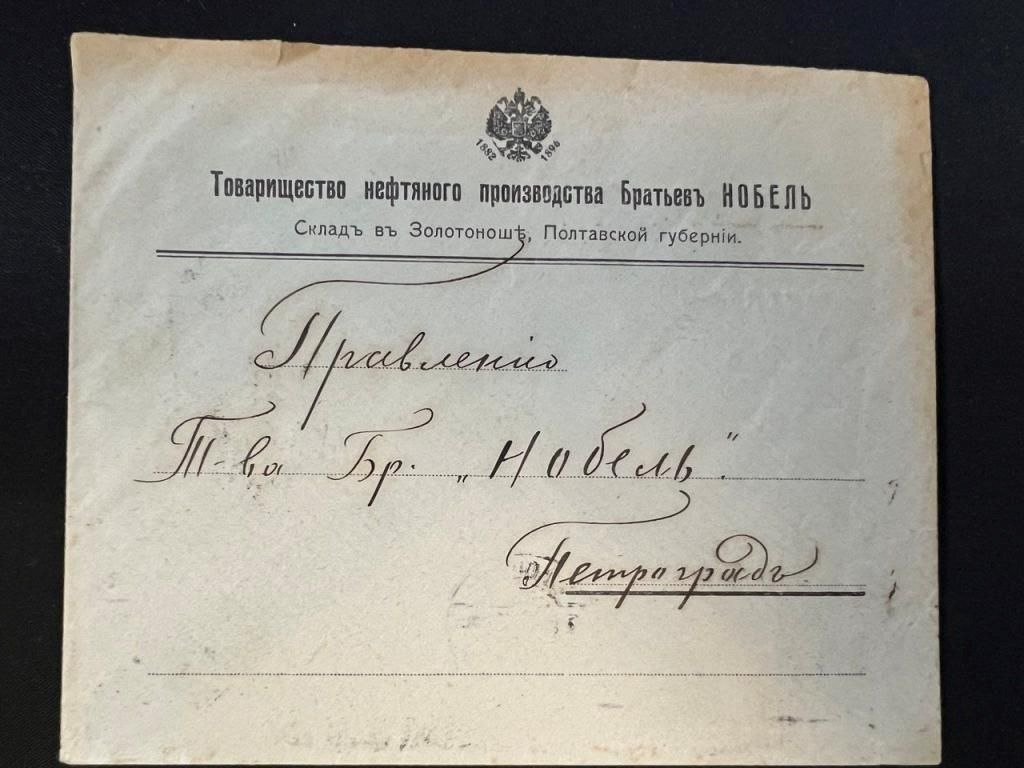 1882 1896
Товарищество нефтяного производства Братьевъ НОБЕЛЬ
Складъ въ Золотоношѣ, Полтавской губерніи.
Правленію
Т-ва Бр. „Нобель".
Петроградъ